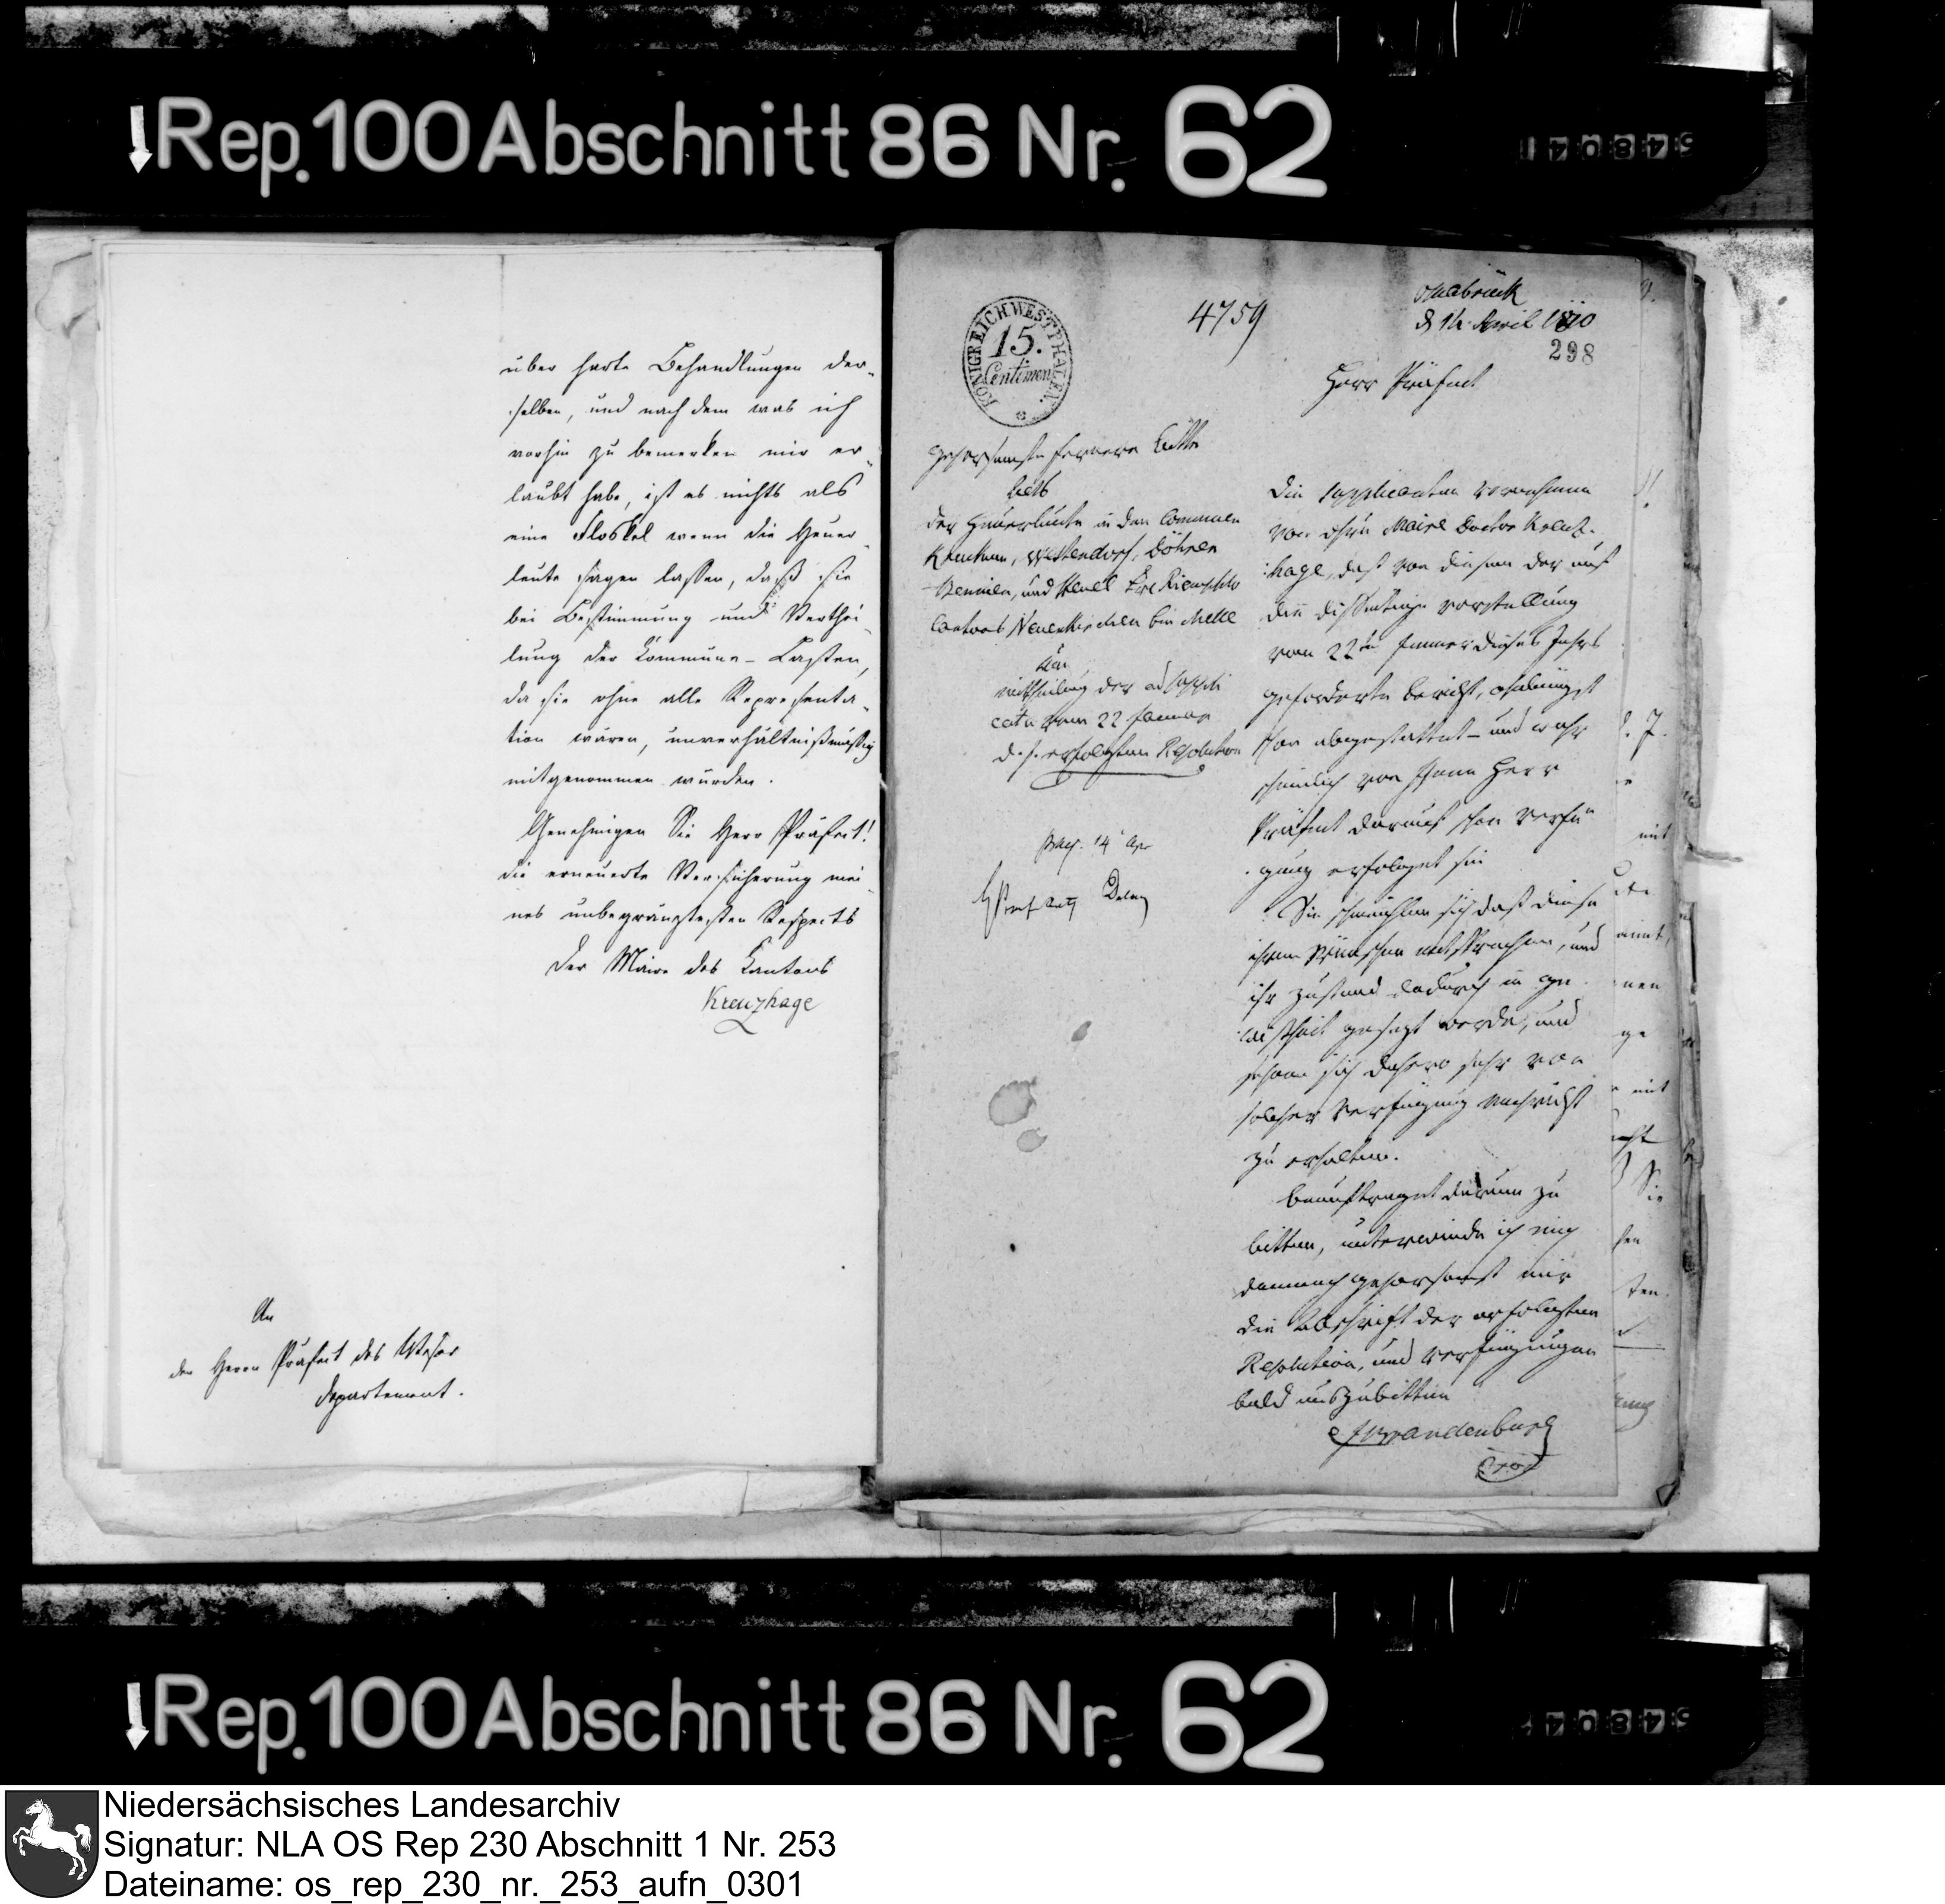 Rep. 100 Abschnitt 86 Nr. 62
über harte Behandlungen der-
selben, und nach dem was ich
vorhin zu bemerken mir er-
laubt habe, ist es nichts als
eine Floskel wenn die Heuer-
leute sagen lassen, daß sie
bei Bestimmung und Verthei-
lung der Commune-Lasten,
da sie ohne alle Representa-
tion wären, unverhältnißmäßig
mitgenommen würden.
Genehmigen Sie Herr Präfect!
die erneuerte Versicherung mei-
nes unbegränztesten Respects
Der Maire des Kantons
Kreuzhage
An
den Herrn Präfect des Weser
Departement.
KÖNIGREICH WESTPHALEN.
15.
Centimen
4759
Osnabrück
d 14 April 1810
298
Herr Präfect
gehorsamste fernere Bitte
der Heuerleute in den Communen
Westendorf, Döhren
und
Cantons Neuenkirchen bei Melle
um
mittheilung der ad suppli
cata vom 22 Januar
d. J. erfolgten Resolution
Die Supplicanten vernehmen
von ihrn Maire Doctor Kreuz-
hage, daß von diesem der auf
die disseitige Vorstellung
vom 22ten Jenner dieses Jahrs
geforderte Bericht, ohnlängst
schon abgestattet - und wahr
scheinlich von Ihnen Herr
Präfect darauf schon Verfü-
gung erfolget sei
Sie schmeichlen sich daß diese
ihren Wünschen entsprechen, und
ihr Zustand dadurch in ge-
wißheit gesezt werde, und
sehnen sich dahero sehr von
solcher Verfügung nachricht
zu erhalten.
Beauftraget darum zu
bitten, unterwinde ich mich
demnach gehorsamst mir
die Abschrift der erfolgten
Resolution, und Verfügungen
bald auszubitten
Brandenburg
Rep. 100 Abschnitt 86 Nr. 62
Niedersächsisches Landesarchiv
Signatur: NLA OS Rep 230 Abschnitt 1 Nr. 253
Dateiname: os_rep_230_nr._253_aufn_0301